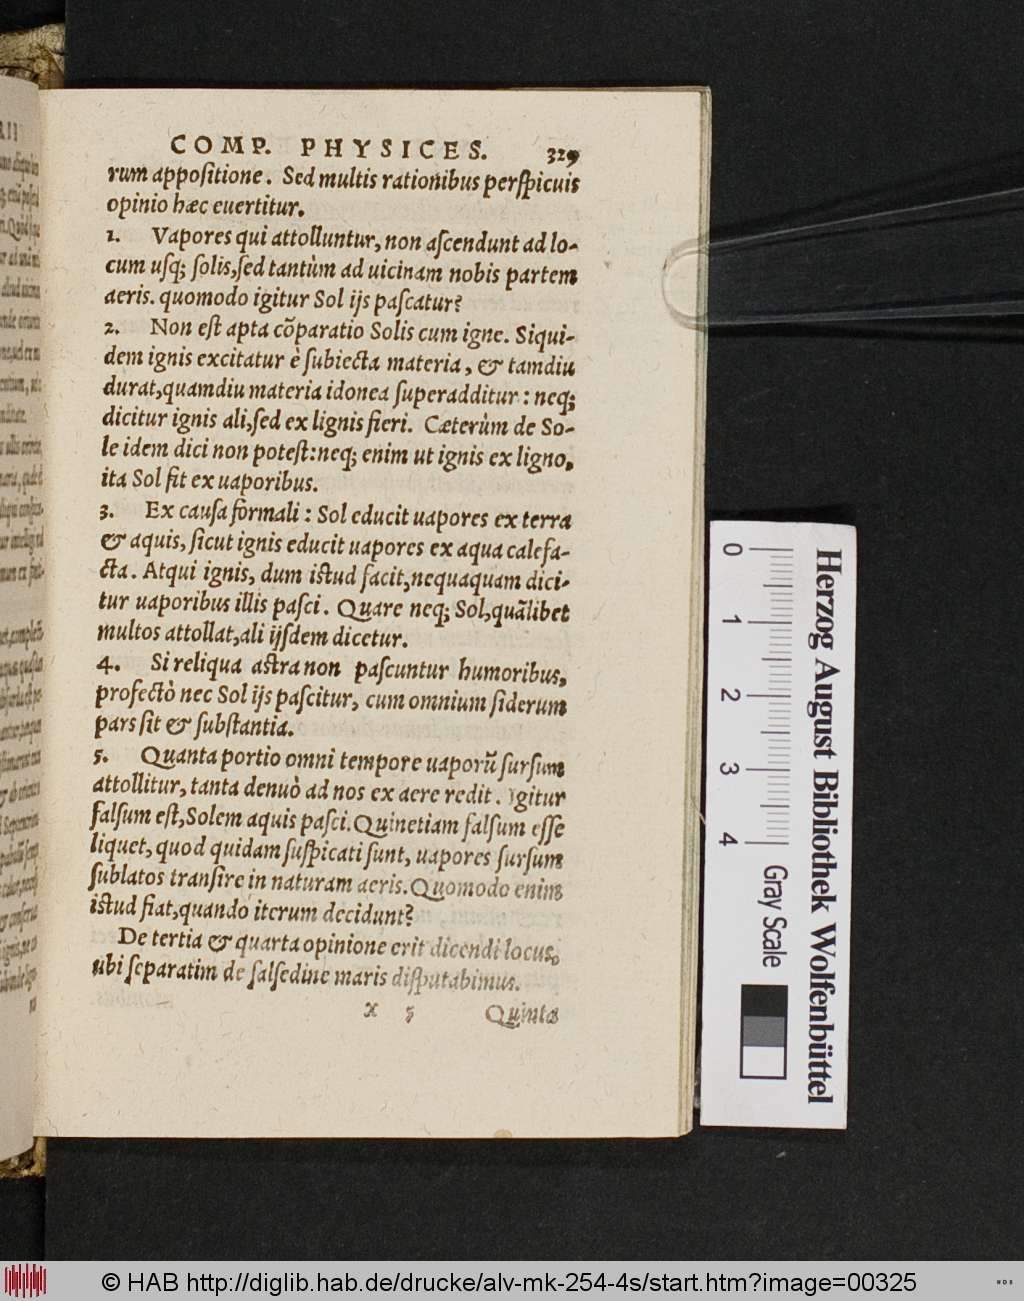 COMP. PHYSICES. 329
rum appoſitione. Sed multis rationibus perſpicuis
opinio hæc euertitur.
1. Vapores qui attolluntur, non aſcendunt ad lo-
cum uſq; ſolis, ſed tantùm ad uicinam nobis partem
aeris. quomodo igitur Sol ijs paſcatur?
2. Non eſt apta cõparatio Solis cum igne. Siqui-
dem ignis excitatur è ſubiecta materia, & tamdiu
durat, quamdiu materia idonea ſuperadditur: neq;
dicitur ignis ali, ſed ex lignis fieri. Cæterùm de So-
le idem dici non poteſt: neq; enim ut ignis ex ligno,
ita Sol fit ex uaporibus.
3. Ex cauſa formali: Sol educit uapores ex terra
& aquis, ſicut ignis educit uapores ex aqua calefa-
cta. Atqui ignis, dum iſtud facit, nequaquam dici-
tur uaporibus illis paſci. Quare neq; Sol, quãlibet
multos attollat, ali ijſdem dicetur.
4. Si reliqua aſtra non paſcuntur humoribus,
profectò nec Sol ijs paſcitur, cum omnium ſiderum
pars ſit & ſubſtantia.
5. Quanta portio omni tempore uaporũ ſurſum
attollitur, tanta denuò ad nos ex aere redit. Igitur
falſum eſt, Solem aquis paſci. Quinetiam falſum eſſe
liquet, quod quidam ſuſpicati ſunt, uapores ſurſum
ſublatos tranſire in naturam aeris. Quomodo enim
iſtud fiat, quando iterum decidunt?
De tertia & quarta opinione erit dicendi locus,
ubi ſeparatim de ſalſedine maris diſputabimus.
x 5 Quinta
0 1 2 3 4
Gray Scale
Herzog August Bibliothek Wolfenbüttel
© HAB http://diglib.hab.de/drucke/alv-mk-254-4s/start.htm?image=00325